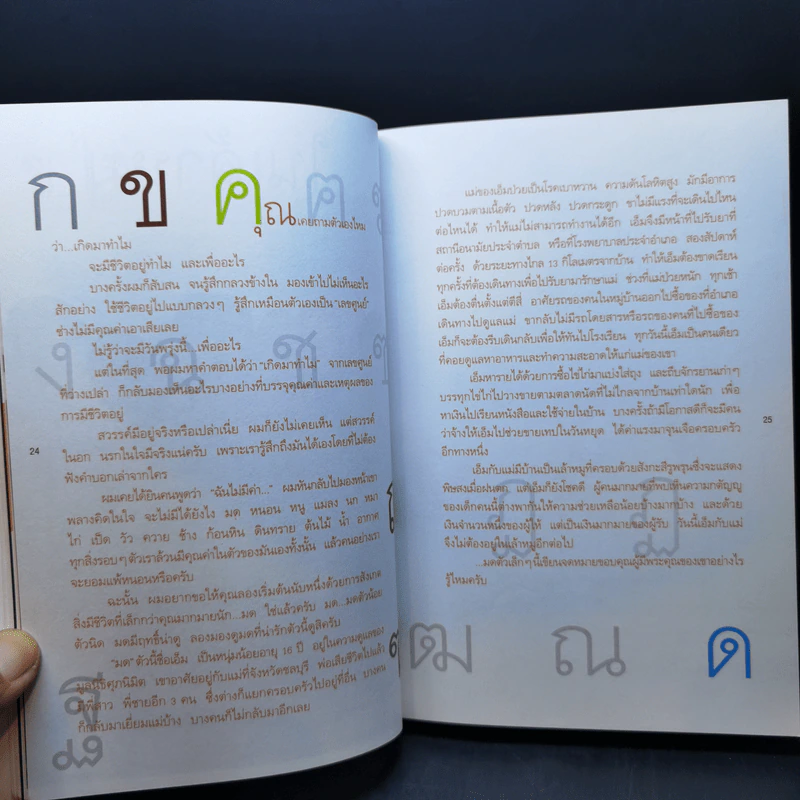 ก ข คุณเคยถามตัวเองไหม
ว่า...เกิดมาทำไม
จะมีชีวิตอยู่ทำไม และเพื่ออะไร
บางครั้งผมก็สับสน จนรู้สึกกลวงข้างใน มองเข้าไปไม่เห็นอะไร
สักอย่าง ใช้ชีวิตอยู่ไปแบบกลวงๆ รู้สึกเหมือนตัวเองเป็น "เลขศูนย์"
ช่างไม่มีคุณค่าเอาเสียเลย
ไม่รู้ว่าจะมีวันพรุ่งนี้...เพื่ออะไร
แต่ในที่สุด พอผมหาคำตอบได้ว่า "เกิดมาทำไม" จากเลขศูนย์
ที่ว่างเปล่า ก็กลับมองเห็นอะไรบางอย่างที่บรรจุคุณค่าและเหตุผลของ
การมีชีวิตอยู่
สวรรค์มีอยู่จริงหรือเปล่าเนี่ย ผมก็ยังไม่เคยเห็น แต่สวรรค์
ในอก นรกในใจมีจริงแน่ครับ เพราะเรารู้สึกถึงมันได้เองโดยที่ไม่ต้อง
ฟังคำบอกเล่าจากใคร
ผมเคยได้ยินคนพูดว่า "ฉันไม่มีค่า..." ผมหันกลับไปมองหน้าเขา
พลางคิดในใจ จะไม่มีได้ยังไง มด หนอน หนู แมลง นก หมา
ไก่ เป็ด วัว ควาย ช้าง ก้อนหิน ดินทราย ต้นไม้ น้ำ อากาศ
ทุกสิ่งรอบๆ ตัวเราล้วนมีคุณค่าในตัวของมันเองทั้งนั้น แล้วคนอย่างเรา
จะยอมแพ้หนอนหรือครับ
ฉะนั้น ผมอยากขอให้คุณลองเริ่มต้นนับหนึ่งด้วยการสังเกต
สิ่งมีชีวิตที่เล็กกว่าคุณมากมายนัก...มด ใช่แล้วครับ มด...มดตัวน้อย
ตัวนิด มดมีฤทธิ์น่าดู ลองมองดูมดที่น่ารักตัวนี้ดูสิครับ
"มด" ตัวนี้ชื่อเอ็ม เป็นหนุ่มน้อยอายุ 16 ปี อยู่ในความดูแลของ
มูลนิธิศุภนิมิต เขาอาศัยอยู่กับแม่ที่จังหวัดชลบุรี พ่อเสียชีวิตไปแล้ว
มีพี่สาว พี่ชายอีก 3 คน ซึ่งต่างก็แยกครอบครัวไปอยู่ที่อื่น บางคน
ก็กลับมาเยี่ยมแม่บ้าง บางคนก็ไม่กลับมาอีกเลย
24
แม่ของเอ็มป่วยเป็นโรคเบาหวาน ความดันโลหิตสูง มักมีอาการ
ปวดบวมตามเนื้อตัว ปวดหลัง ปวดกระดูก ขาไม่มีแรงที่จะเดินไปไหน
ต่อไหนได้ ทำให้แม่ไม่สามารถทำงานได้อีก เอ็มจึงมีหน้าที่ไปรับยาที่
สถานีอนามัยประจำตำบล หรือที่โรงพยาบาลประจำอำเภอ สองสัปดาห์
ต่อครั้ง ด้วยระยะทางไกล 13 กิโลเมตรจากบ้าน ทำให้เอ็มต้องขาดเรียน
ทุกครั้งที่ต้องเดินทางเพื่อไปรับยามารักษาแม่ ช่วงที่แม่ป่วยหนัก ทุกเช้า
เอ็มต้องตื่นตั้งแต่ตีสี่ อาศัยรถของคนในหมู่บ้านออกไปซื้อของที่อำเภอ
เดินทางไปดูแลแม่ ขากลับไม่มีรถโดยสารหรือรถของคนที่ไปซื้อของ
เอ็มก็จะต้องรีบเดินกลับเพื่อให้ทันไปโรงเรียน ทุกวันนี้เอ็มเป็นคนเดียว
ที่คอยดูแลหาอาหารและทำความสะอาดให้แก่แม่ของเขา
เอ็มหารายได้ด้วยการซื้อไข่ไก่มาแบ่งใส่ถุง และถีบจักรยานเก่าๆ
บรรทุกไข่ไก่ไปวางขายตามตลาดนัดที่ไม่ไกลจากบ้านเท่าใดนัก เพื่อ
หาเงินไปเรียนหนังสือและใช้จ่ายในบ้าน บางครั้งถ้ามีโอกาสดีก็จะมีคน
ว่าจ้างให้เอ็มไปช่วยขายเทปในวันหยุด ได้ค่าแรงมาจุนเจือครอบครัว
อีกทางหนึ่ง
เอ็มกับแม่มีบ้านเป็นเล้าหมูที่ครอบด้วยสังกะสีรูพรุนซึ่งจะแสดง
พิษสงเมื่อฝนตก แต่เอ็มก็ยังโชคดี ผู้คนมากมายที่พบเห็นความกตัญญู
ของเด็กคนนี้ต่างพากันให้ความช่วยเหลือน้องเข้ามากบ้าง และด้วย
เงินจำนวนหนึ่งของผู้ให้ แต่เป็นเงินมากมายของผู้รับ วันนี้เอ็มกับแม่
จึงไม่ต้องอยู่ในเล้าหมูอีกต่อไป
...มดตัวเล็กๆ นี้เขียนจดหมายขอบคุณผู้มีพระคุณของเขาอย่างไร
รู้ไหมครับ
25
ฏ ฎ
ฒ ณ ด